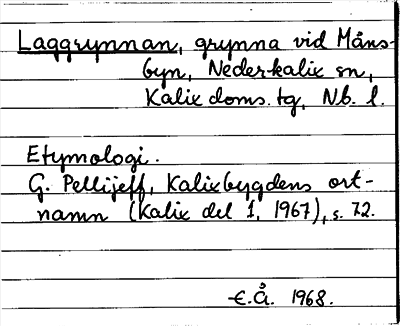 Laggrynnan, grynna vid Måns-
byn, Nederkalix sn,
Kalix doms. tg, Nb. l.
Etymologi.
G. Pellijeff, Kalixbygdens ort-
namn (Kalix del 1, 1967), s. 72.
E.Å. 1968.